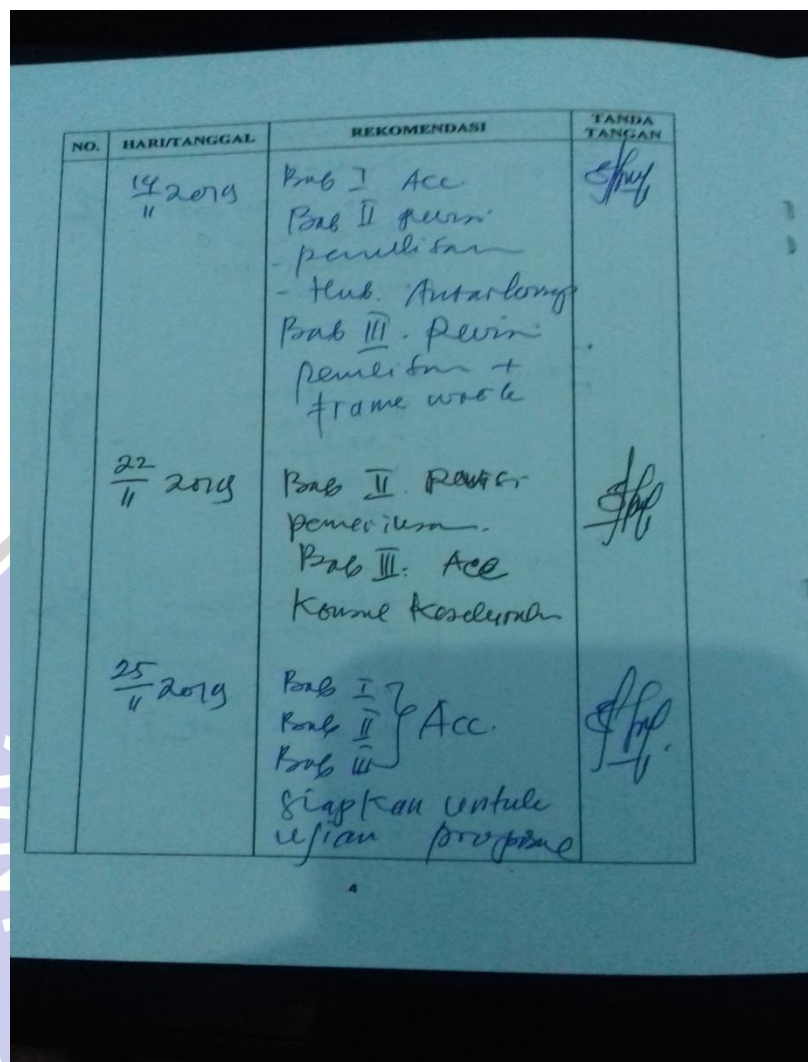 NO. HARI/TANGGAL REKOMENDASI TANDA TANGAN
14/11 2019 Bab I Acc.
Bab II revisi
- penulisan
- Hub. Antarkonsep
Bab III. Revisi
penulisan +
frame work
22/11 2019 Bab II. Revisi
Bab III. Acc
Konsul Keseluruhan
25/11 2019 Bab I
Bab II Acc.
Bab III
siapkan untuk
ujian proposal
4